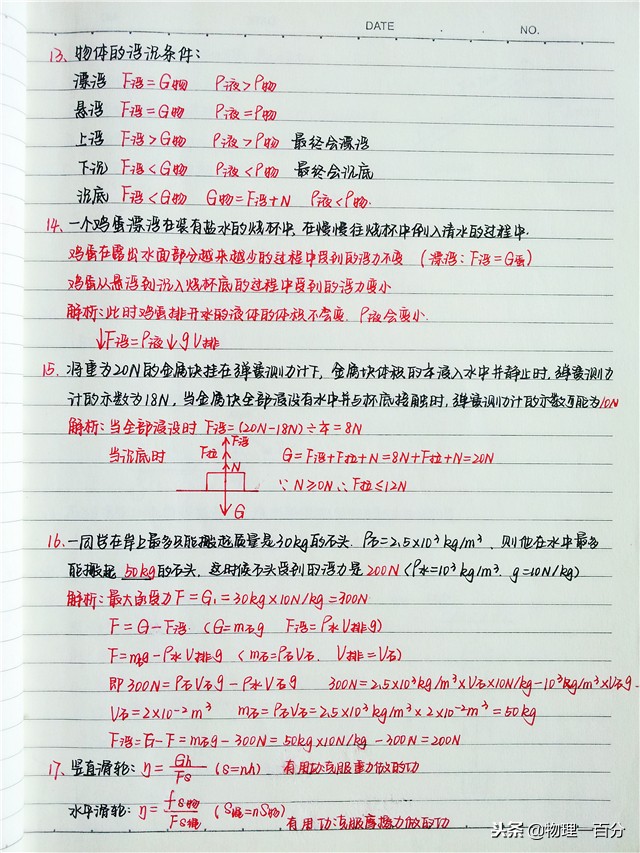 DATE NO.
13. 物体的浮沉条件：
漂浮 F浮=G物 ρ液>ρ物
悬浮 F浮=G物 ρ液=ρ物
上浮 F浮>G物 ρ液>ρ物 最终会漂浮
下沉 F浮<G物 ρ液<ρ物 最终会沉底
沉底 F浮<G物 G物=F浮+N ρ液<ρ物.
14. 一个鸡蛋漂浮在装有盐水的烧杯中, 在慢慢往烧杯中倒入清水的过程中.
鸡蛋在露出水面部分越来越少的过程中受到的浮力不变 (漂浮：F浮=G蛋)
鸡蛋从悬浮到沉入烧杯底的过程中受到的浮力变小
解析：此时鸡蛋排开水的液体的体积不会变. ρ液会变小.
↓F浮=ρ液↓gV排
15. 将重为20N的金属块挂在弹簧测力计下, 金属块体积的 浸入水中并静止时, 弹簧测力
计的示数为18N, 当金属块全部浸没有水中并与杯底接触时, 弹簧测力计的示数可能为10N
解析：当全部浸没时 F浮=(20N-18N)÷ =8N
当沉底时 G=F浮+F拉+N=8N+F拉+N=20N
∵N≥0N ∴F拉≤12N
F浮
F拉
N
G
16. 一同学在岸上最多只能搬起质量是30kg的石头. ρ石=2.5×10³kg/m³, 则他在水中最多
能搬起 50kg 的石头, 这时候石头受到的浮力是 200N (ρ水=10³kg/m³. g=10N/kg)
解析：最大的受力 F=G₁=30kg×10N/kg=300N
F=G-F浮. (G=m石g F浮=ρ水V排g)
F=m石g-ρ水V排g (m石=ρ石V石. V排=V石)
即300N=ρ石V石g-ρ水V石g 300N=2.5×10³kg/m³×V石×10N/kg-10³kg/m³×V石g.
V石=2×10⁻²m³ m石=ρ石V石=2.5×10³kg/m³×2×10⁻²m³=50kg
F浮=G-F=m石g-300N=50kg×10N/kg-300N=200N
17. 竖直滑轮：η=Gh/Fs (s=nh) 有用功克服重力做的功
水平滑轮：η=fs物/Fs绳 (S绳=nS物) 有用功克服摩擦力做的功
头条 @物理一百分